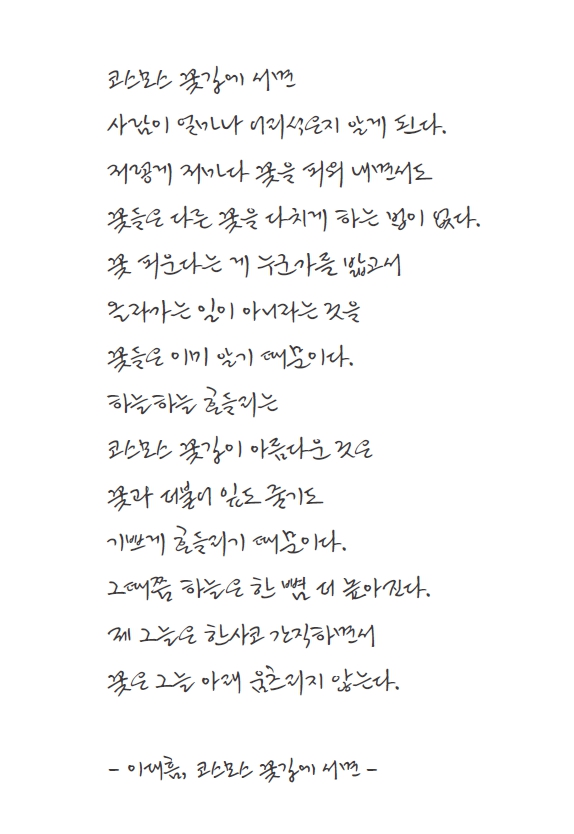 코스모스 꽃길에 서면
사람이 얼마나 어리석은지 알게 된다.
저렇게 저마다 꽃을 피워 내면서도
꽃들은 다른 꽃을 다치게 하는 법이 없다.
꽃 피운다는 게 누군가를 밟고서
올라가는 일이 아니라는 것을
꽃들은 이미 알기 때문이다.
하늘하늘 흔들리는
코스모스 꽃길이 아름다운 것은
꽃과 더불어 잎도 줄기도
기쁘게 흔들리기 때문이다.
그때쯤 하늘은 한 뼘 더 높아진다.
제 그늘은 한사코 간직하면서
꽃은 그늘 아래 움츠리지 않는다.
- 이대흠, 코스모스 꽃길에 서면 -